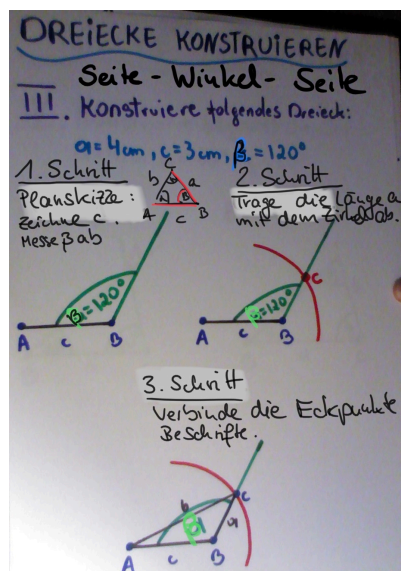 DREIECKE KONSTRUIEREN
Seite - Winkel - Seite
III. Konstruiere folgendes Dreieck:
a = 4 cm, c = 3 cm, β = 120°
1. Schritt
Planskizze:
zeichne c.
Messe β ab
C
b
a
β
A
c
B
β = 120°
A
c
B
2. Schritt
Trage die Länge a
mit dem Zirkel ab.
C
β = 120°
A
c
B
3. Schritt
Verbinde die Eckpunkte
Beschrifte.
b
C
β
a
A
c
B